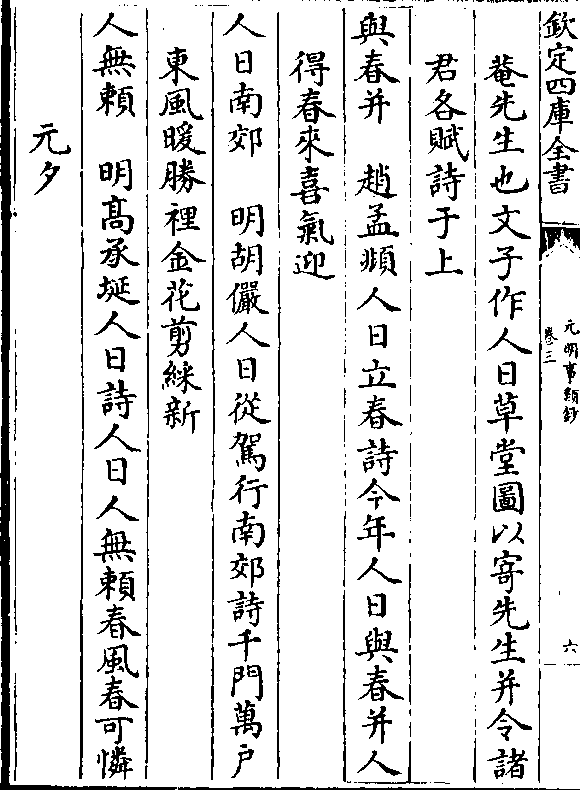 欽定四庫全書
元明事類鈔
卷三
六
菴先生也文子作人日草堂圖以寄先生并令諸
君各賦詩于上
與春并　趙孟頫人日立春詩今年人日與春并人
得春來喜氣迎
人日南郊　明胡儼人日從駕行南郊詩千門萬戸
東風暖勝裡金花剪綵新
人無賴　明高承埏人日詩人日人無賴春風春可憐
元夕